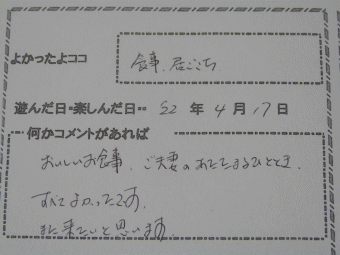 よかったよココ
食事、居ごこち
遊んだ日・楽しんだ日・・ 22 年 4 月 17 日
何かコメントがあれば
おいしいお食事、ご夫妻のあたたまるひととき、
すべてよかったです。
また来たいと思います。